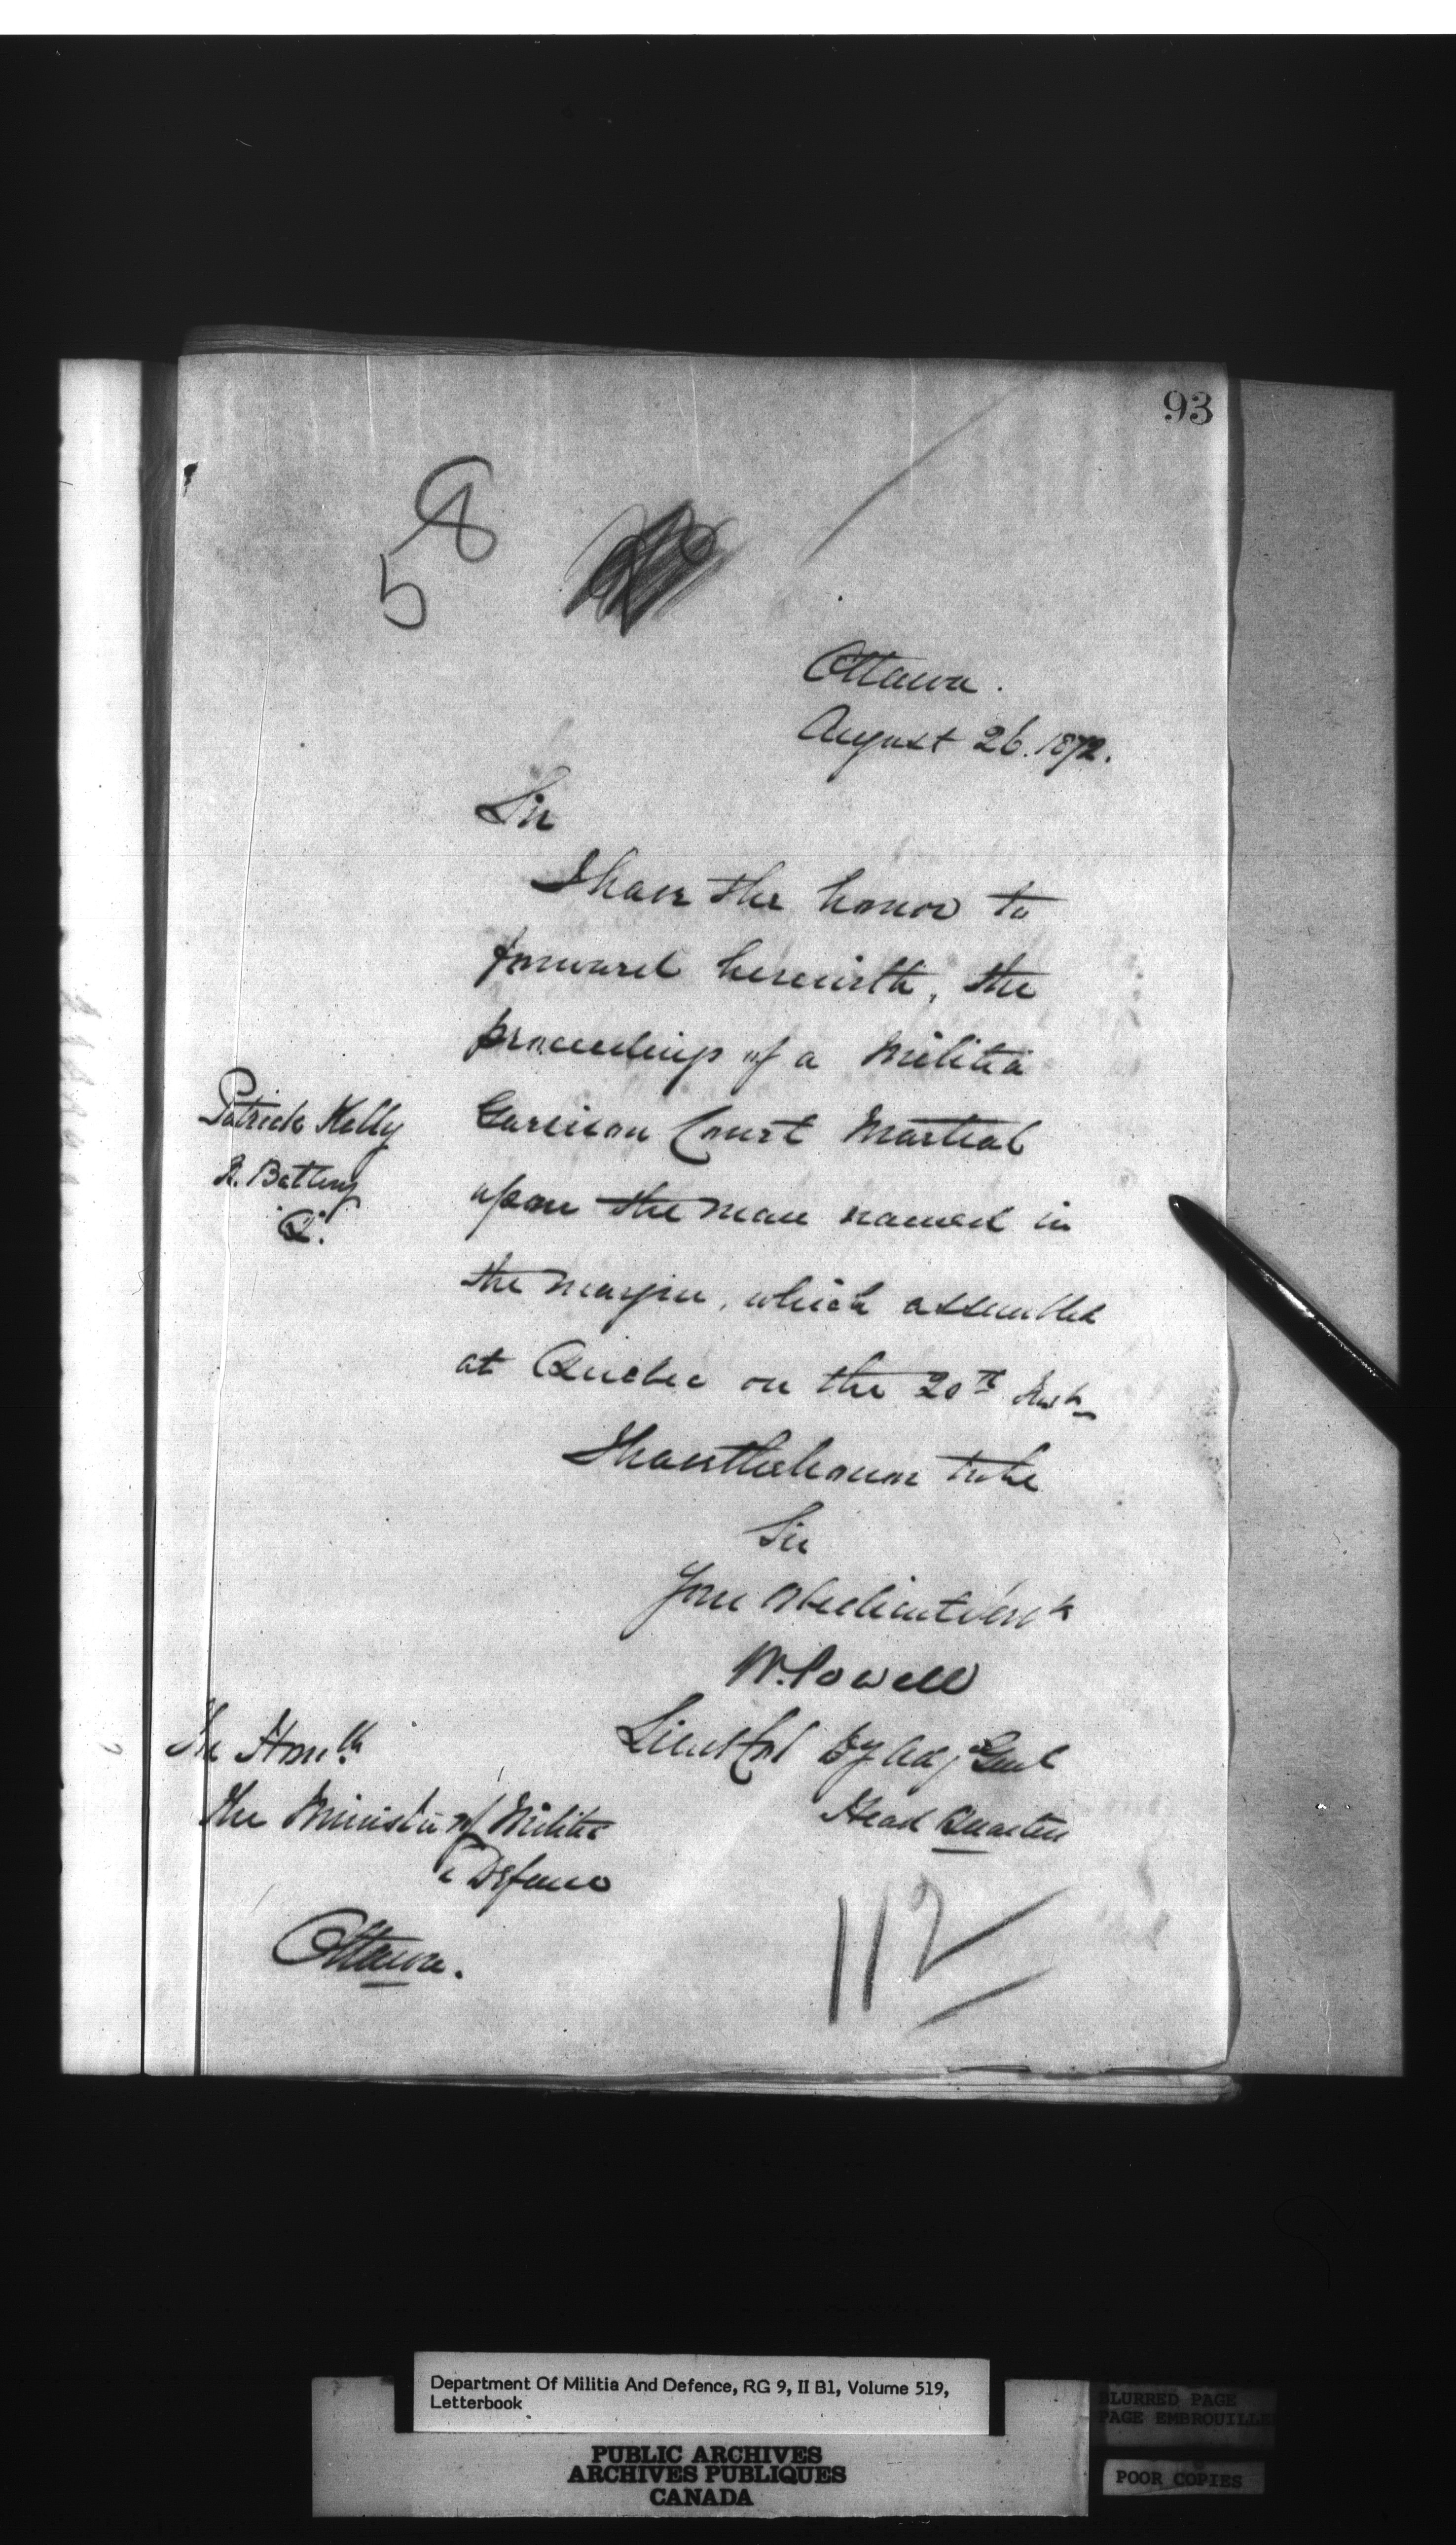 93
8
5
Ottawa.
August 26. 1872.
Sir
I have the honor to
forward herewith, the
proceedings of a Militia
Patrick Kelly
Garrison Court Martial
A. Battery
upon the man named in
"Q".
the margin, which assembled
at Quebec on the 20th Inst
I have the honor to be
Sir
Your obedient Servt
W. Powell
Lieut Col Dy Adj Genl
Head Quarters
The Honble
The Minister of Militia
& Defence
Ottawa.
112
Department Of Militia And Defence, RG 9, II B1, Volume 519,
Letterbook
PUBLIC ARCHIVES
ARCHIVES PUBLIQUES
CANADA
BLURRED PAGE
PAGE EMBROUILLE
POOR COPIES